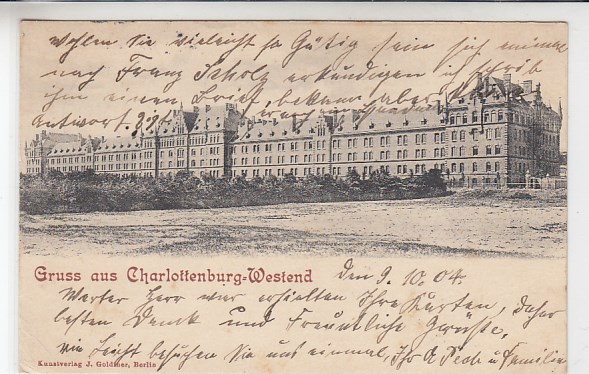 wohlen Sie vieleicht so Gütig sein sich einmal
nach Franz Scholz erkundigen ich schrib
ihm einen Brief, bekam aber
Antwort
Gruss aus Charlottenburg-Westend
Den 9. 10. 04.
Werter Herr wir erhielten Ihre Karten, daher
besten Dank und Freuntliche Grüsse,
vie leicht besuchen Sie uns einmal, Ihr A Pech u Familie
Kunstverlag J. Goldiner, Berlin